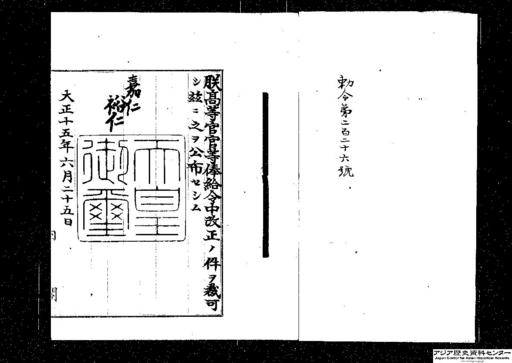 勅令第二百二十六號
朕高等官官等俸給令中改正ノ件ヲ裁可
シ玆ニ之ヲ公布セシム
嘉仁
裕仁
天皇
御璽
大正十五年六月二十五日
アジア歴史資料センター
Japan Center for Asian Historical Records